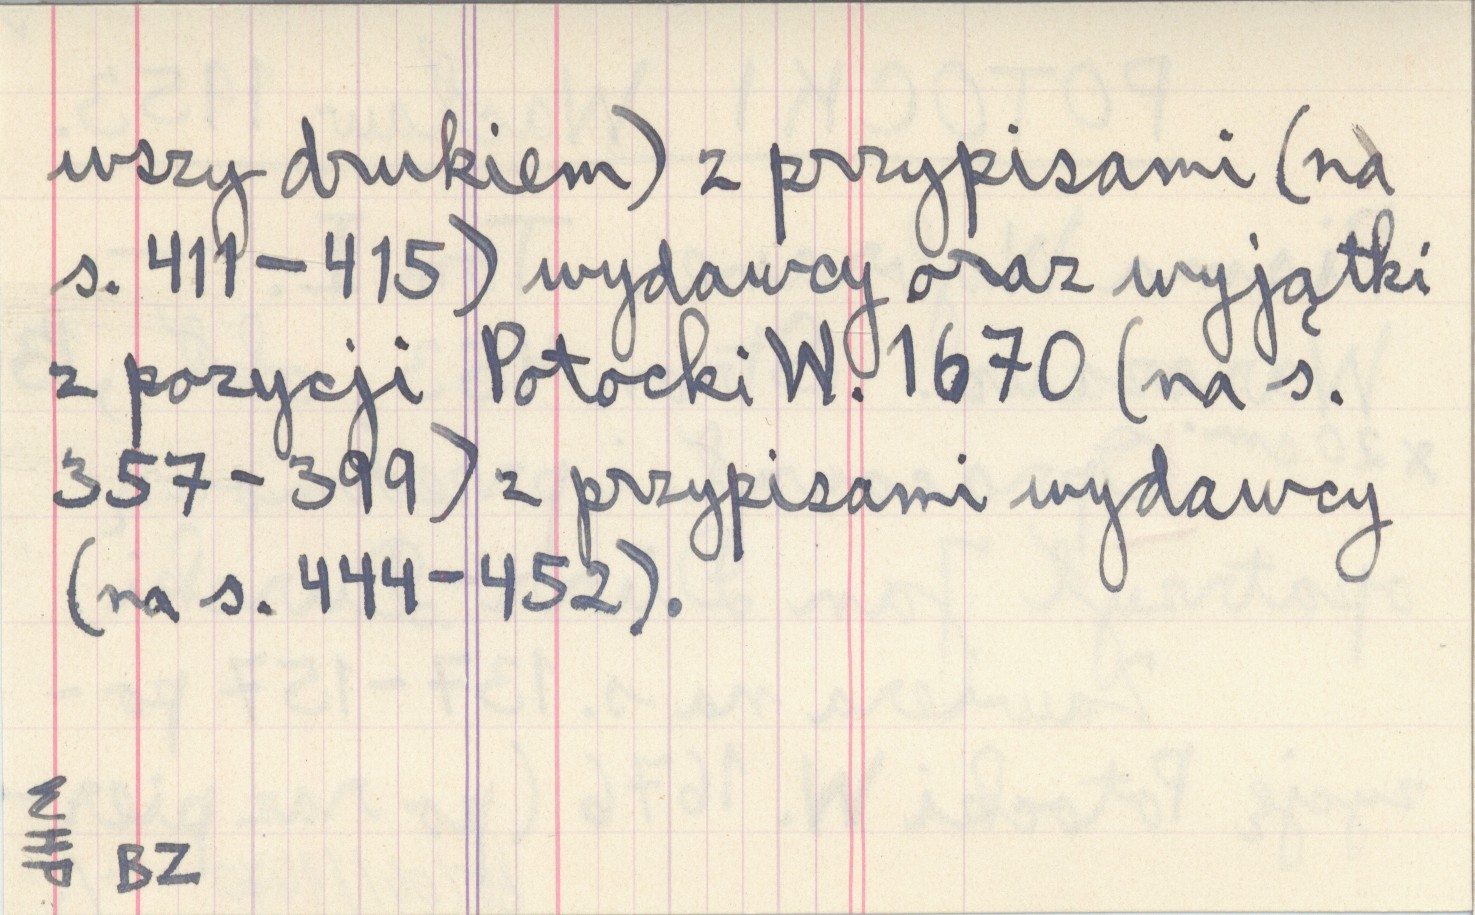 wszy drukiem) z przypisami (na
s. 411-415) wydawcy oraz wyjątki
z pozycji Potocki W. 1670 (na s.
357-399) z przypisami wydawcy
(na s. 444-452).
BZ